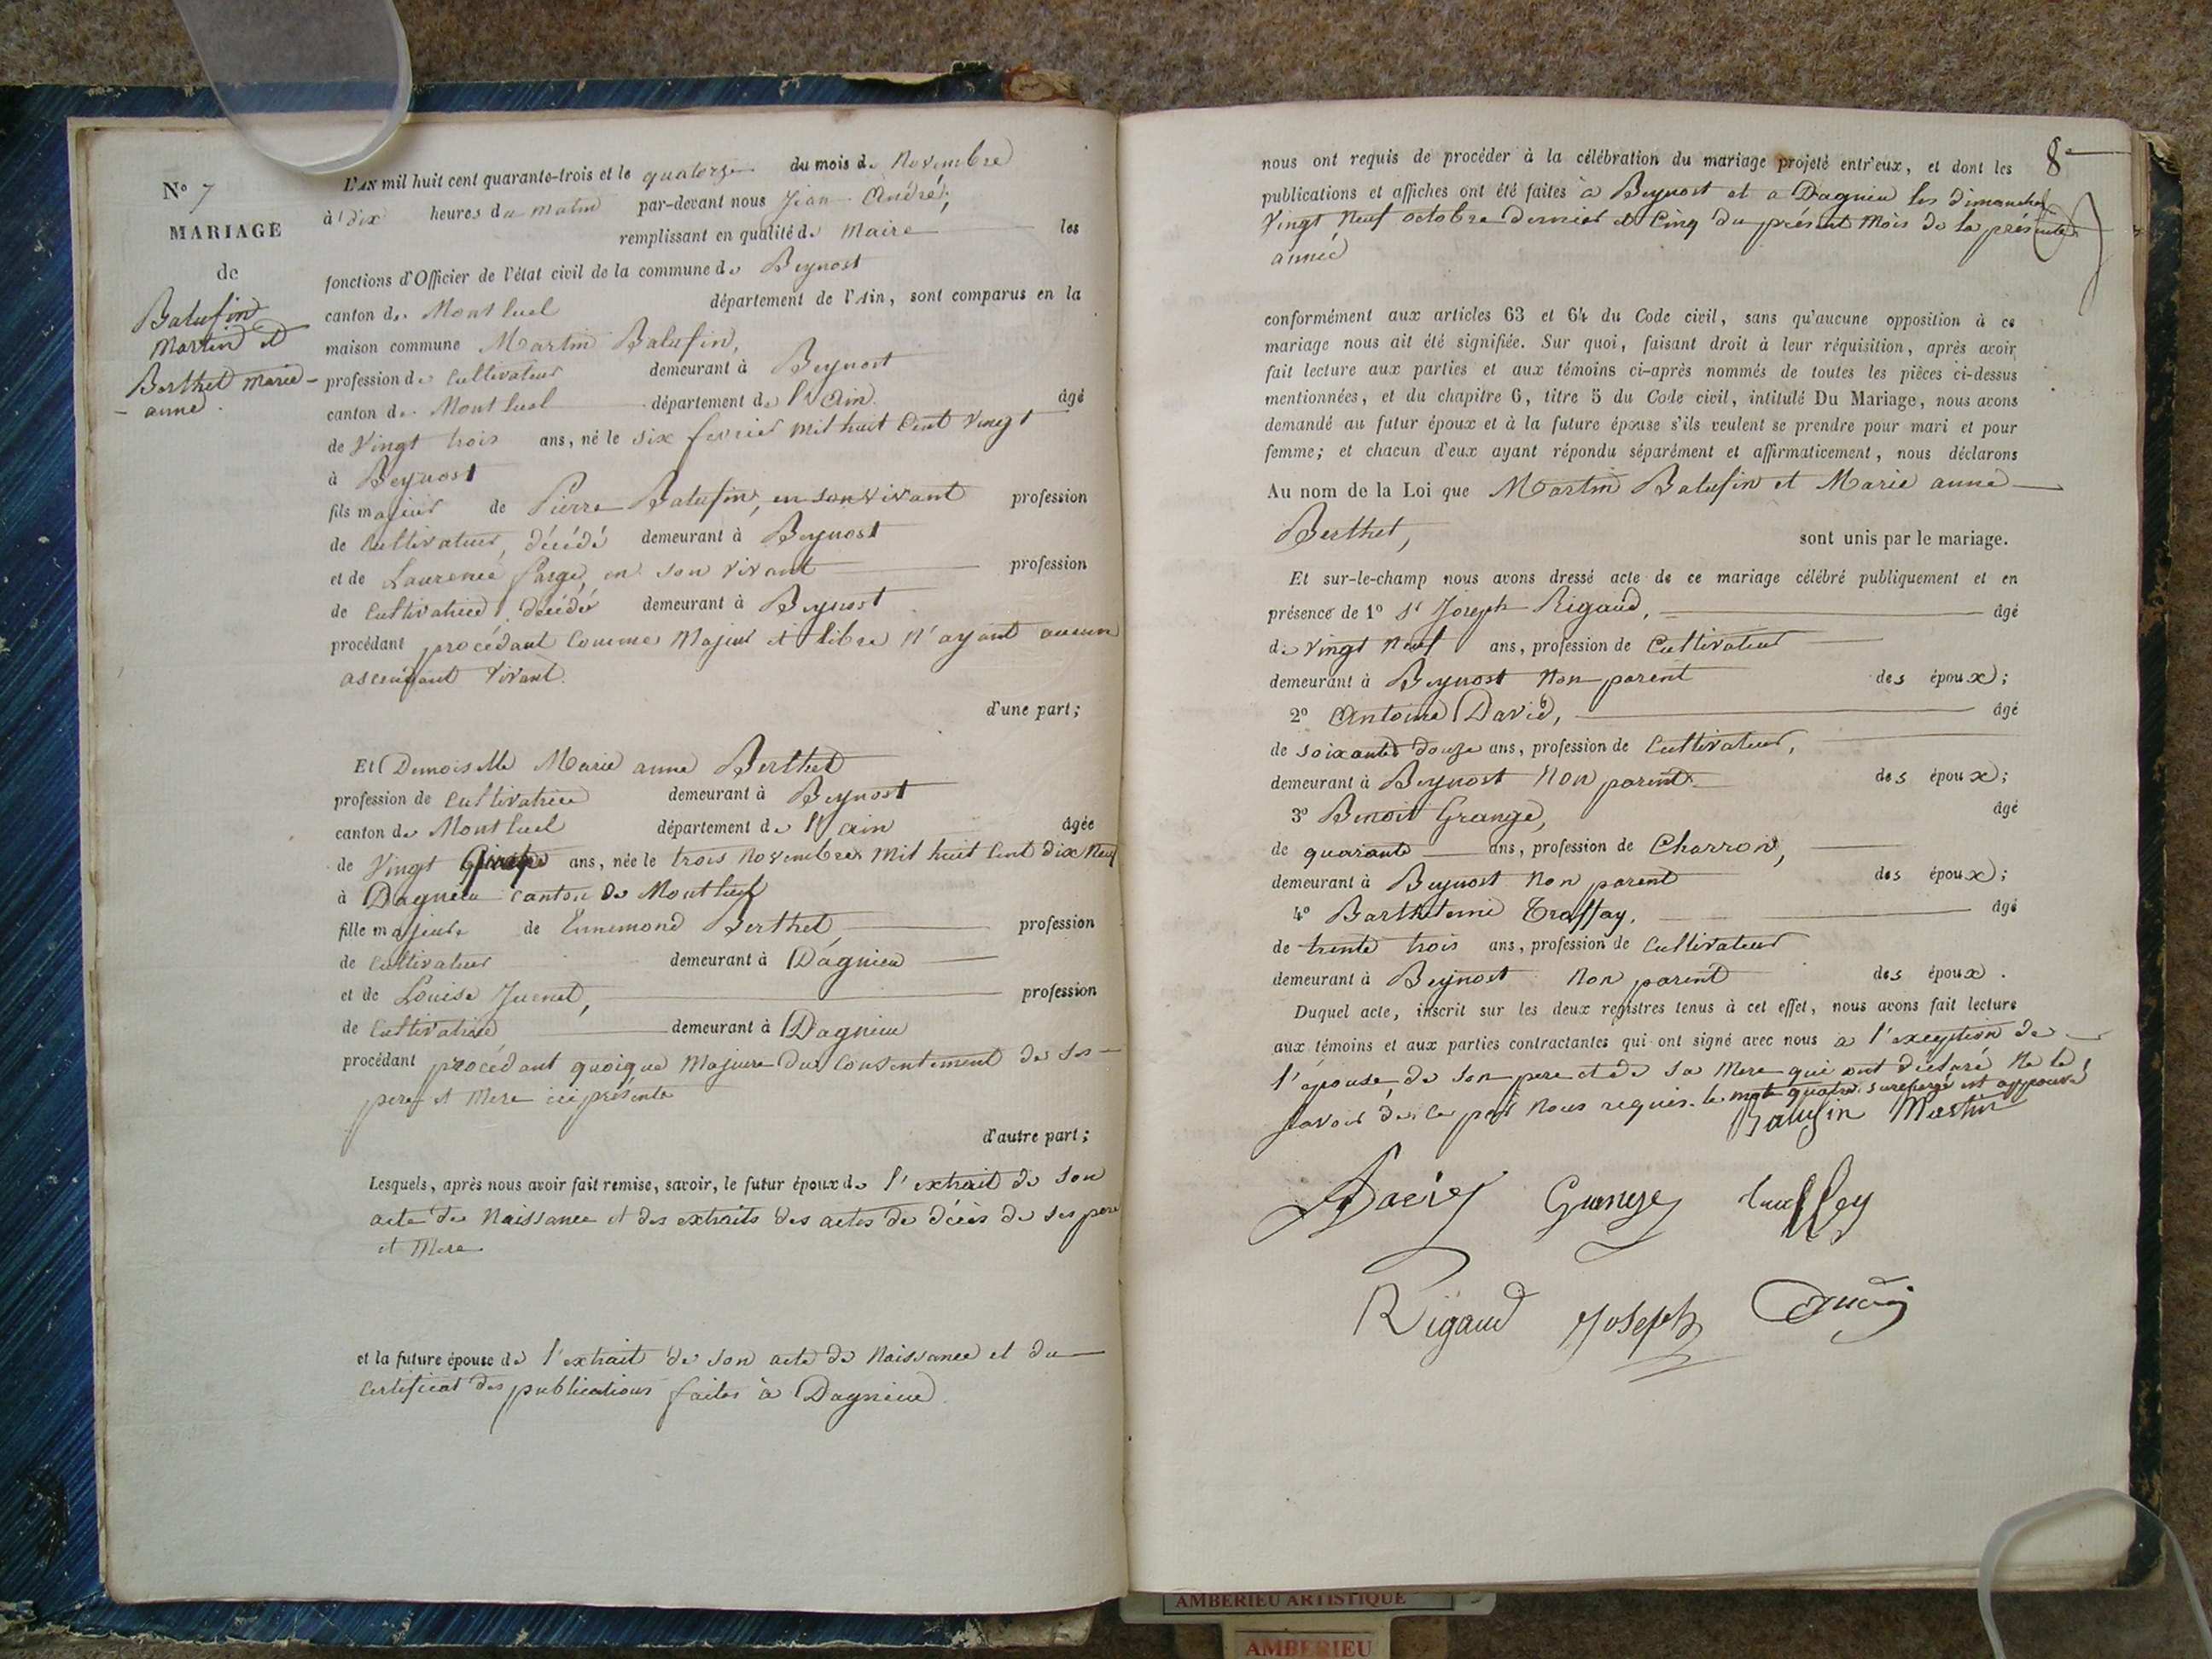 N° 7
MARIAGE
de
Balufin
Martin et
Berthet Marie-
- anne.
L'AN mil huit cent quarante-trois et le quatorze du mois de Novembre
à dix heures du matin par-devant nous Jean André,
remplissant en qualité de Maire les
fonctions d'Officier de l'état civil de la commune de Beynost
canton de Montluel département de l'Ain, sont comparus en la
maison commune Martin Balufin,
profession de Cultivateur demeurant à Beynost
canton de Montluel département de l'Ain. âgé
de Vingt trois ans, né le six fevrier mil huit Cent Vingt
à Beynost
fils majeur de Pierre Balufin, en son vivant profession
de Cultivateur, décédé demeurant à Beynost
et de Laurence en son vivant profession
de Cultivatrice, décédée demeurant à Beynost
procédant procédant Comme Majeur et libre N'ayant aucun
ascendant Vivant.
d'une part;
Et Demoiselle Marie anne Berthet
profession de Cultivatrice demeurant à Beynost
canton de Montluel département de l'Ain âgée
de Vingt quatre ans, née le trois Novembre Mil huit Cent dix Neuf
à Dagnieu Canton de Montluel
fille majeure de Ennemond Berthet profession
de Cultivateur demeurant à Dagnieu
et de Louise Juenet, profession
de Cultivatrice demeurant à Dagnieu
procédant procédant quoique Majeure du Consentement de ses
pere et Mere ici présents
d'autre part;
Lesquels, après nous avoir fait remise, savoir, le futur époux de l'extrait de son
acte de Naissance et des extraits des actes de décès de ses pere
et Mere
et la future épouse de l'extrait de son acte de Naissance et du
Certificat des publications faites à Dagnieu.
8
nous ont requis de procéder à la célébration du mariage projeté entr'eux, et dont les
publications et affiches ont été faites à Beynost et a Dagnieu les dimanches
Vingt Neuf octobre dernier et Cinq du présent Mois de la présente
année
conformément aux articles 63 et 64 du Code civil, sans qu'aucune opposition à ce
mariage nous ait été signifiée. Sur quoi, faisant droit à leur réquisition, après avoir
fait lecture aux parties et aux témoins ci-après nommés de toutes les pièces ci-dessus
mentionnées, et du chapitre 6, titre 5 du Code civil, intitulé Du Mariage, nous avons
demandé au futur époux et à la future épouse s'ils veulent se prendre pour mari et pour
femme; et chacun d'eux ayant répondu séparément et affirmativement, nous déclarons
Au nom de la Loi que Martin Balufin et Marie anne
Berthet,
sont unis par le mariage.
Et sur-le-champ nous avons dressé acte de ce mariage célébré publiquement et en
présence de 1° Sr Joseph Rigaud, âgé
de Vingt Neuf ans, profession de Cultivateur
demeurant à Beynost Non parent des époux;
2° Antoine David, âgé
de soixante douze ans, profession de Cultivateur,
demeurant à Beynost Non parent des époux;
3° Benoit Grange, âgé
de quarante ans, profession de Charron,
demeurant à Beynost Non parent des époux;
4° Barthelemi Traffay, âgé
de trente trois ans, profession de Cultivateur
demeurant à Beynost Non parent des époux.
Duquel acte, inscrit sur les deux registres tenus à cet effet, nous avons fait lecture
aux témoins et aux parties contractantes qui ont signé avec nous a l'exeption de
l'épouse de son pere et de sa Mere qui ont déclaré Ne le
savoir de ce par Nous requis. le mot quatre surchargé est approuvé
Balufin Martin
David Grange
Rigaud Joseph André
AMBERIEU ARTISTIQUE
AMBERIEU